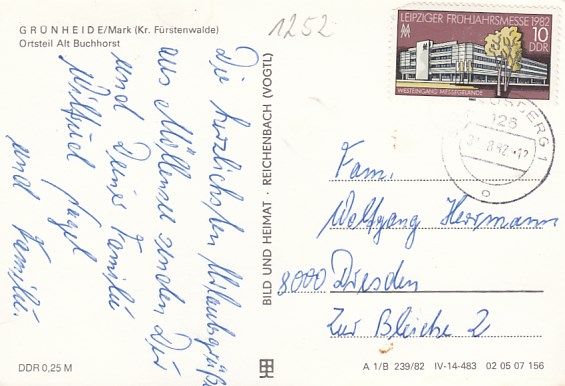 GRÜNHEIDE/Mark (Kr. Fürstenwalde)
Ortsteil Alt Buchhorst
1252
Die herzlichsten Urlaubsgrüße
aus Möllensee senden Dir
und Deiner Familie
Wilfried
und Familie.
BILD UND HEIMAT · REICHENBACH (VOGTL)
LEIPZIGER FRÜHJAHRSMESSE 1982
10
DDR
WESTEINGANG MESSEGELÄNDE
126
Fam.
Wolfgang Herrmann
8000 Dresden
Zur Bleiche 2
DDR 0,25 M
A 1/B 239/82 IV-14-483 02 05 07 156